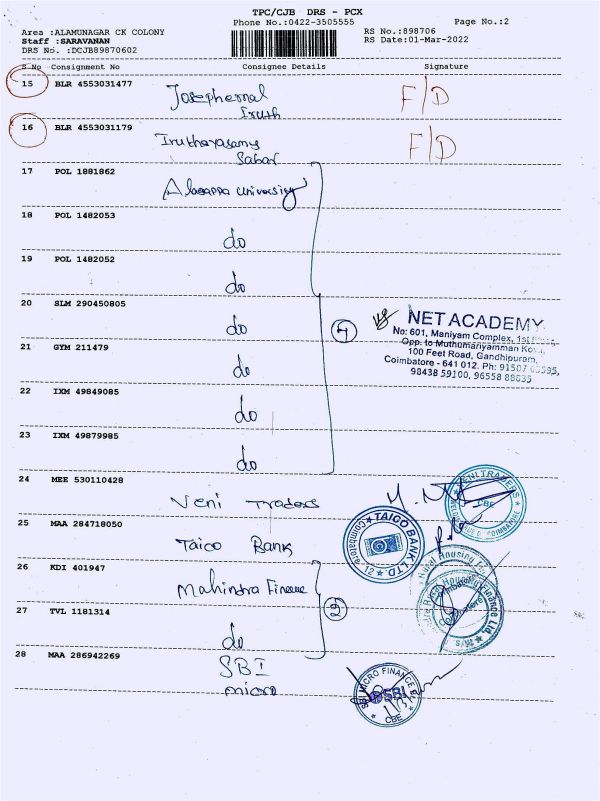 TPC/CJB DRS - PCX
Phone No.:0422-3505555
Page No.:2
Area :ALAMUNAGAR CK COLONY
RS No.:898706
Staff :SARAVANAN
RS Date:01-Mar-2022
DRS No. :DCJB89870602
S No Consignment No Consignee Details Signature
15 BLR 4553031477 F/D
16 BLR 4553031179 F/D
17 POL 1881862
Alagappa University
18 POL 1482053
do
19 POL 1482052
do
20 SLM 290450805
do
21 GYM 211479
do
22 IXM 49849085
do
23 IXM 49879985
do
7
NET ACADEMY
No: 601, Maniyam Complex, 1st
Opp. to Muthumariyamman
100 Feet Road, Gandhipuram,
Coimbatore - 641 012. Ph: 91507
98438 59100, 96558 88835
24 MEE 530110428
Veni Traders
VENI TRADERS
CBE
25 MAA 284718050
Taico Bank
TAICO BANK LTD.
Coimbatore 12
26 KDI 401947
Mahindra Finance
27 TVL 1181314
do
Rural Housing Finance Ltd.
Coimbatore
28 MAA 286942269
SBI
micro
SBI MICRO FINANCE
SBI
CBE